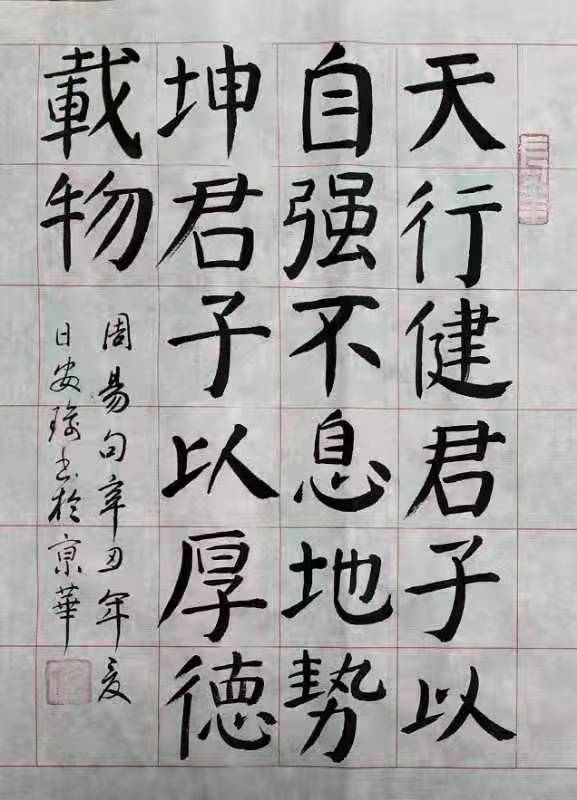 天行健君子以
自强不息地势
坤君子以厚德
載物
周易句辛丑年夏
日安璇书於京華